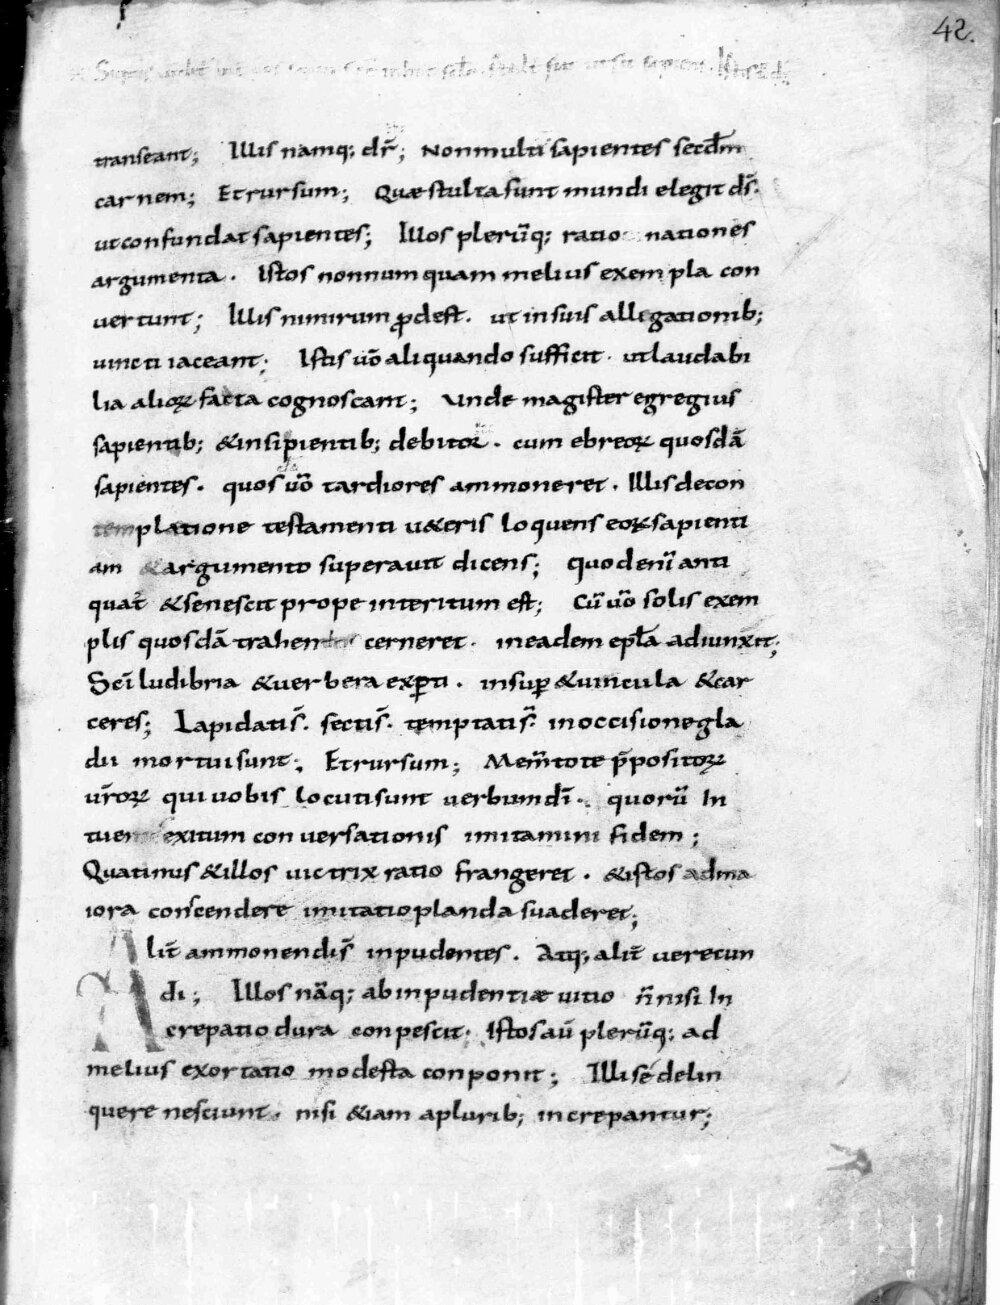 42.
transeant; Illis namq; dr̄; Non multi sapientes secdm̄
carnem; Et rursum; Quae stulta sunt mundi elegit ds̄.
ut confundat sapientes; Illos plerūq; ratiocinationes
argumenta. Istos nonnumquam melius exempla con
vertunt; Illis nimirum ꝓdest. ut in suis allegationib;
uincti iaceant; Istis ūo aliquando sufficit. ut laudabi
lia alioꝝ facta cognoscant; Unde magister egregius
sapientib; & insipientib; debitor. cum ebreoꝝ quosdā
sapientes. quosūo tardiores ammoneret. Illis de con
templatione testamenti u&eris loquens eoꝝ sapienti
am argumento superauit dicens; Quod enī anti
quat̄ & senescit prope interitum est; Cū ūo solis exem
plis quosdā trahendos cerneret. in eadem epl̄a adiunxit;
Sc̄i ludibria & uerbera exꝑti. insuꝑ & uincula & car
ceres; Lapidatis̄. sectis̄. temptatis̄. in occisione gla
dii mortui sunt; Et rursum; Mem̄tote p̄positoꝝ
ur̄oꝝ qui uobis locuti sunt uerbum dī. quorū In
tuentes exitum conuersationis imitamini fidem;
Quatinus & illos uictrix ratio frangeret. & istos ad ma
iora conscendere imitatio blanda suaderet;
Alit̄ ammonendis̄ inpudentes. Atq; alit̄ uerecun
di; Illos nāq; ab inpudentiae uitio n̄ nisi In
crepatio dura conpescit. Istos aū plerūq; ad
melius exortatio modesta conponit; Illi se delin
quere nesciunt. nisi &iam a plurib; increpantur;